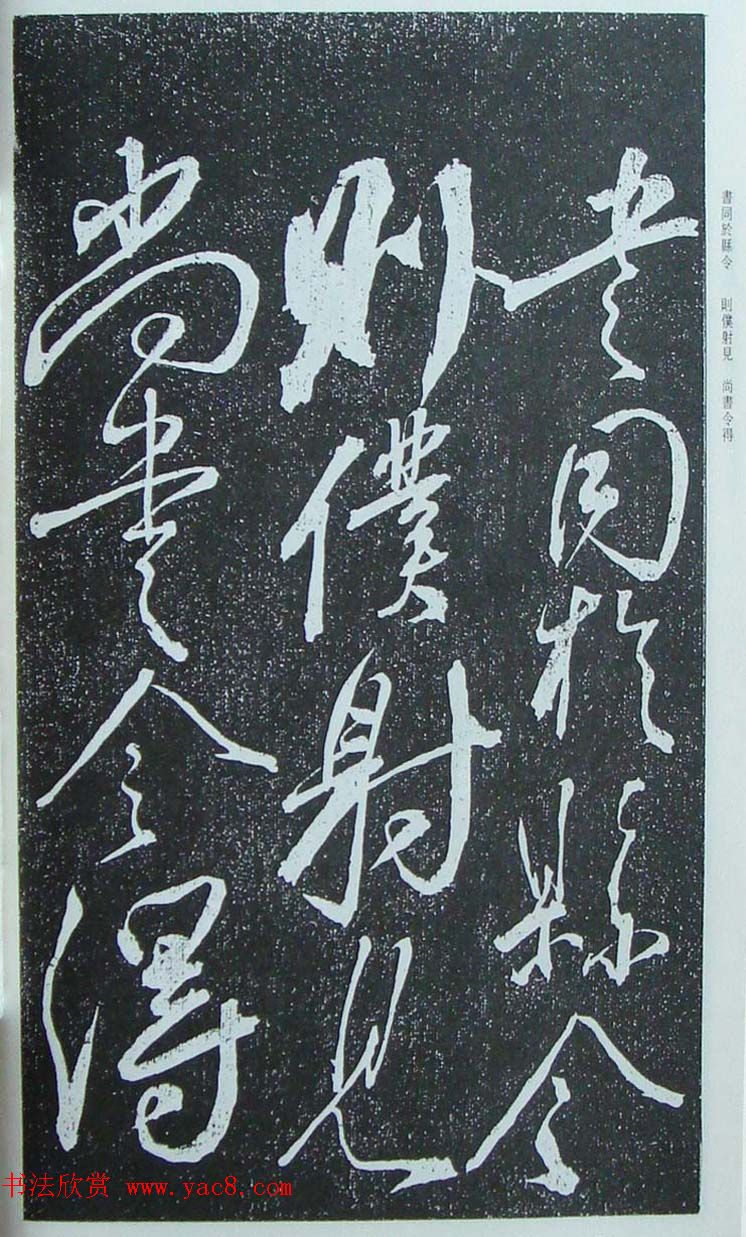 書同於縣令
則僕射見
尚書令得
書同於縣令 則僕射見 尚書令得
书法欣赏 www.yac8.com